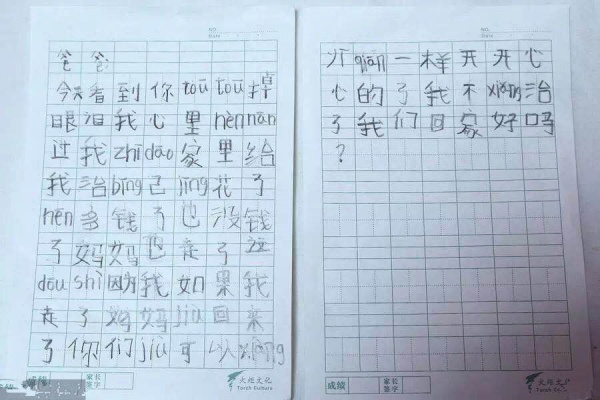 NO.
Date
爸爸:
今天看到你tōutōu掉
眼泪我心里hěnnān
过我zhīdào家里给
我治bìng已jīng花了
hěn多钱了也没钱
了妈妈也走了这
dōushì因为我如果我
走了妈妈jiù回来
了你们jiù可以
成绩
家长
签字
火炬文化
Torch Culture
NO.
Date
qián一样开开心
心的了我不xiǎng治
了我们回家好吗
?
成绩
家长
签字
火炬文化